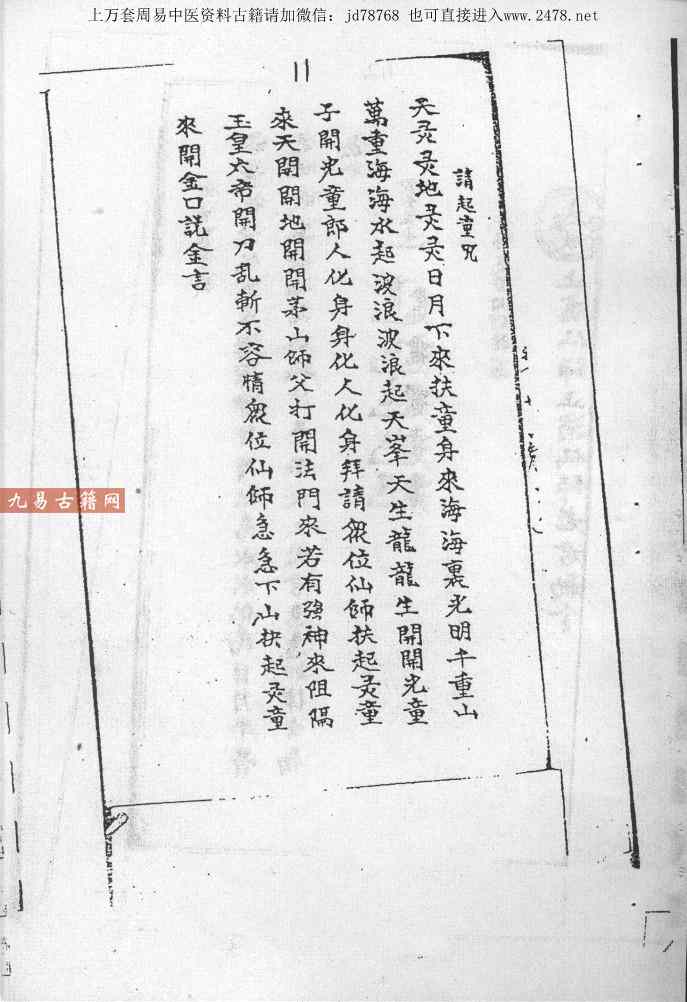 上万套周易中医资料古籍请加微信：jd78768 也可直接进入www.2478.net
11
請起童咒
天灵灵地灵灵日月下來扶童身來海海裏光明千重山
萬重海海水起波浪波浪起天峯天生龍龍生開開光童
子開光童郎人化身身化人化身拜請眾位仙師扶起灵童
來天開開地開開茅山師父打開法門來若有強神來阻隔
玉皇大帝開刀乱斬不容情眾位仙师急急下山扶起灵童
來開金口說金言
九易古籍网